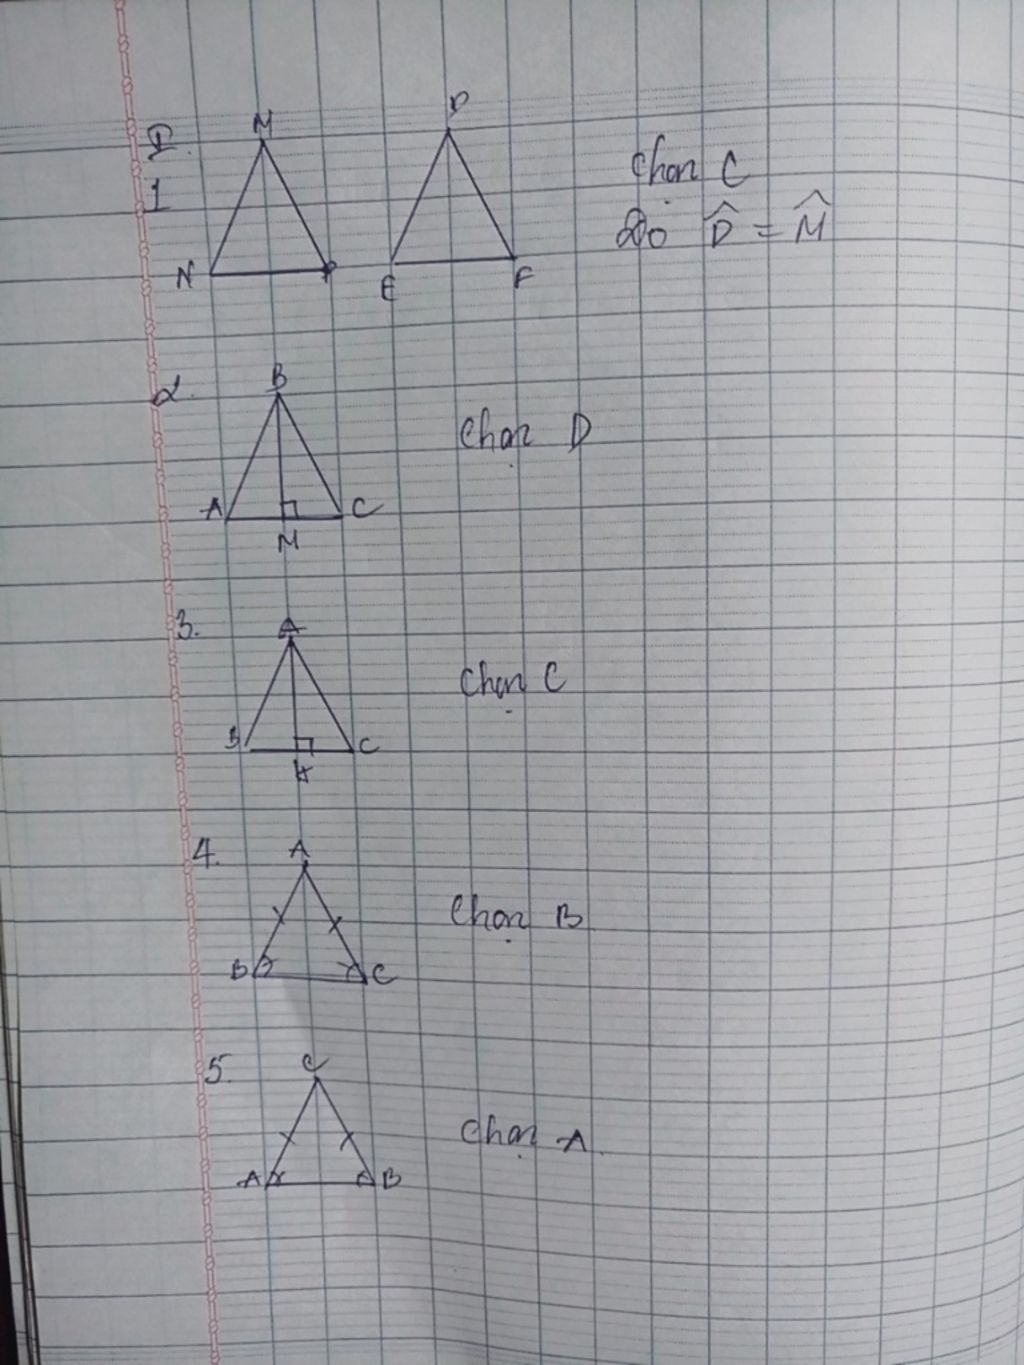 I.
1
M
N
P
D
E
F
Chọn C
Do D̂ = M̂
2.
B
A
C
M
Chọn D
3.
A
B
C
H
Chọn C
4.
A
B
C
Chọn B
5.
C
A
B
Chọn A.